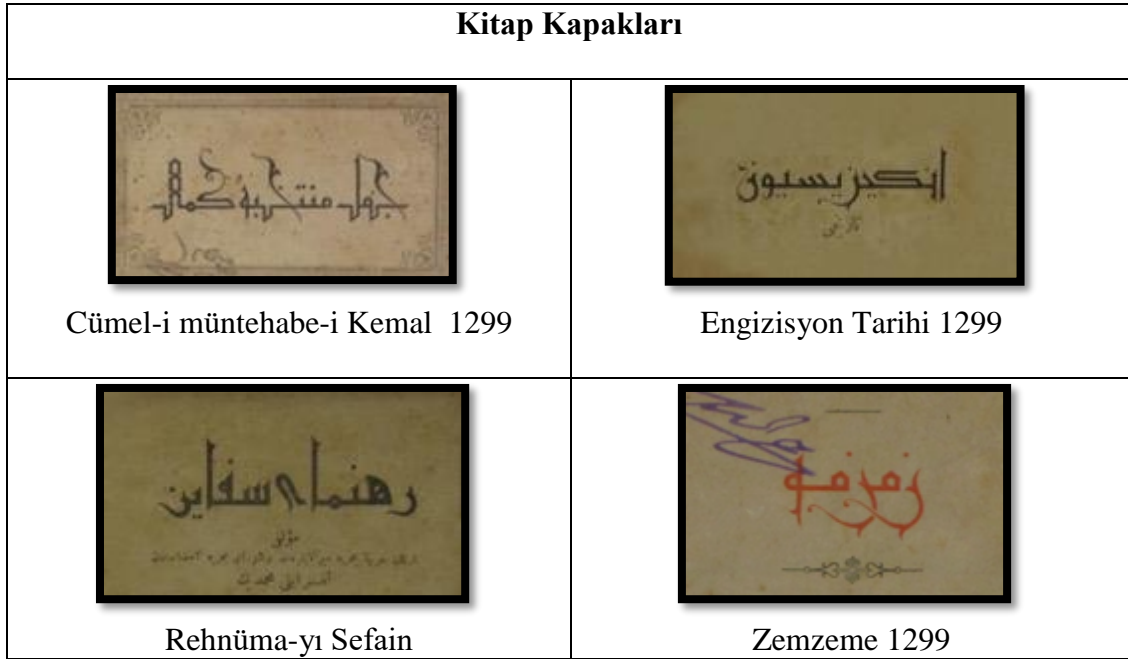 Kitap Kapakları
جمل منتخبۀ كمال
انكيزيسيون
تاريخى
Cümel-i müntehabe-i Kemal 1299
Engizisyon Tarihi 1299
رهنماى سفاين
مؤلفى
زمزمه
Rehnüma-yı Sefain
Zemzeme 1299